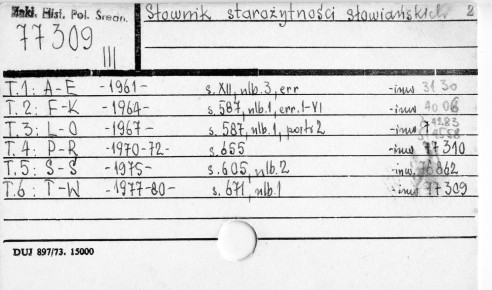 Zakł. Hist. Pol. Średn.
77309
III
Słownik starożytności słowiańskich 2
T.1: A-E -1961- s. XII, nlb. 3, err -inw 3130
T.2: F-K -1964- s. 587, nlb. 1, err. 1-VI -inw 4006
T.3: L-O -1967- s. 587, nlb. 1, portr 2 -inw
T.4: P-R -1970-72- s. 655 -inw 77310
T.5: S-Ś -1975- s. 605, nlb. 2 -inw. 76862
T.6: T-W -1977-80- s. 671, nlb. 1 -inw 77309
DUJ 897/73. 15000